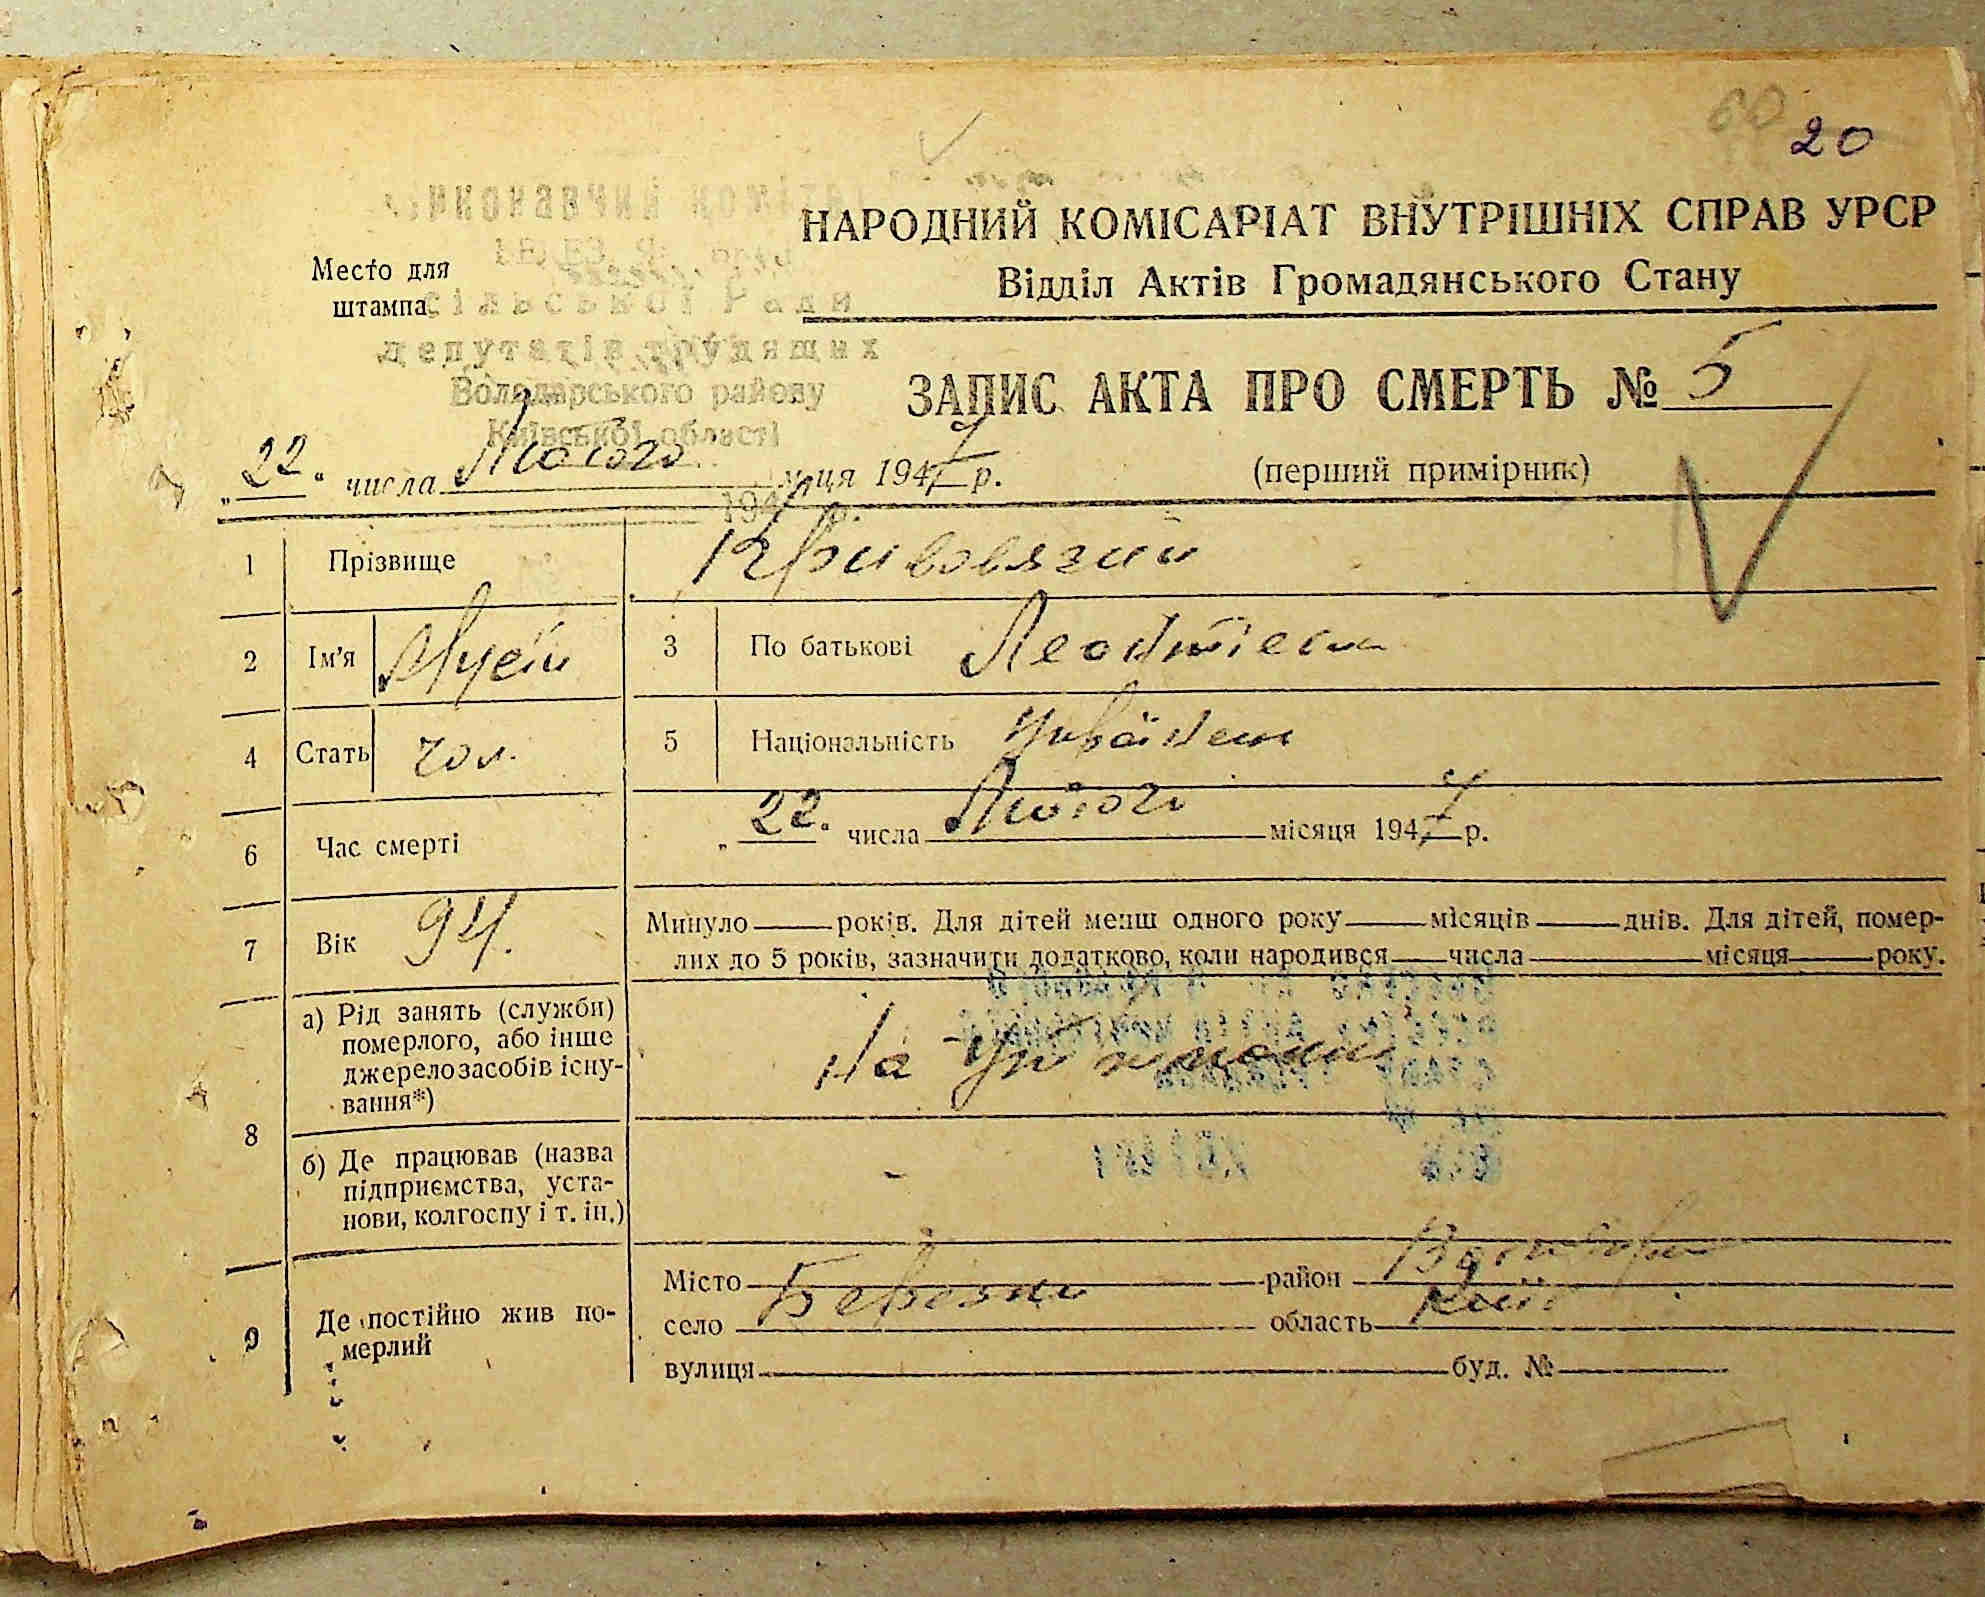 60 20
Виконавчий комітет
НАРОДНИЙ КОМІСАРІАТ ВНУТРІШНІХ СПРАВ УРСР
Место для
штампа
Відділ Актів Громадянського Стану
сільської Ради
депутатів трудящих
Володарського району
Київської області
ЗАПИС АКТА ПРО СМЕРТЬ № 5
„22“ числа Лютого м-ця 1947 р.
(перший примірник)
194
1 Прізвище Кривовязий
2 Ім'я Мусій 3 По батькові Леонтієви
4 Стать чол. 5 Національність Українец
6 Час смерті „22. числа Лютого місяця 1947 р.
7 Вік 94. Минуло років. Для дітей менш одного року місяців днів. Для дітей, помер-
лих до 5 років, зазначити додатково, коли народився числа місяця року.
8 а) Рід занять (служби)
померлого, або інше
джерело засобів існу-
вання*)
На утриманні
б) Де працював (назва
підприємства, уста-
нови, колгоспу і т. ін.)
-
9 Де постійно жив по-
мерлий
Місто район
село Березни область Київ
вулиця буд. №